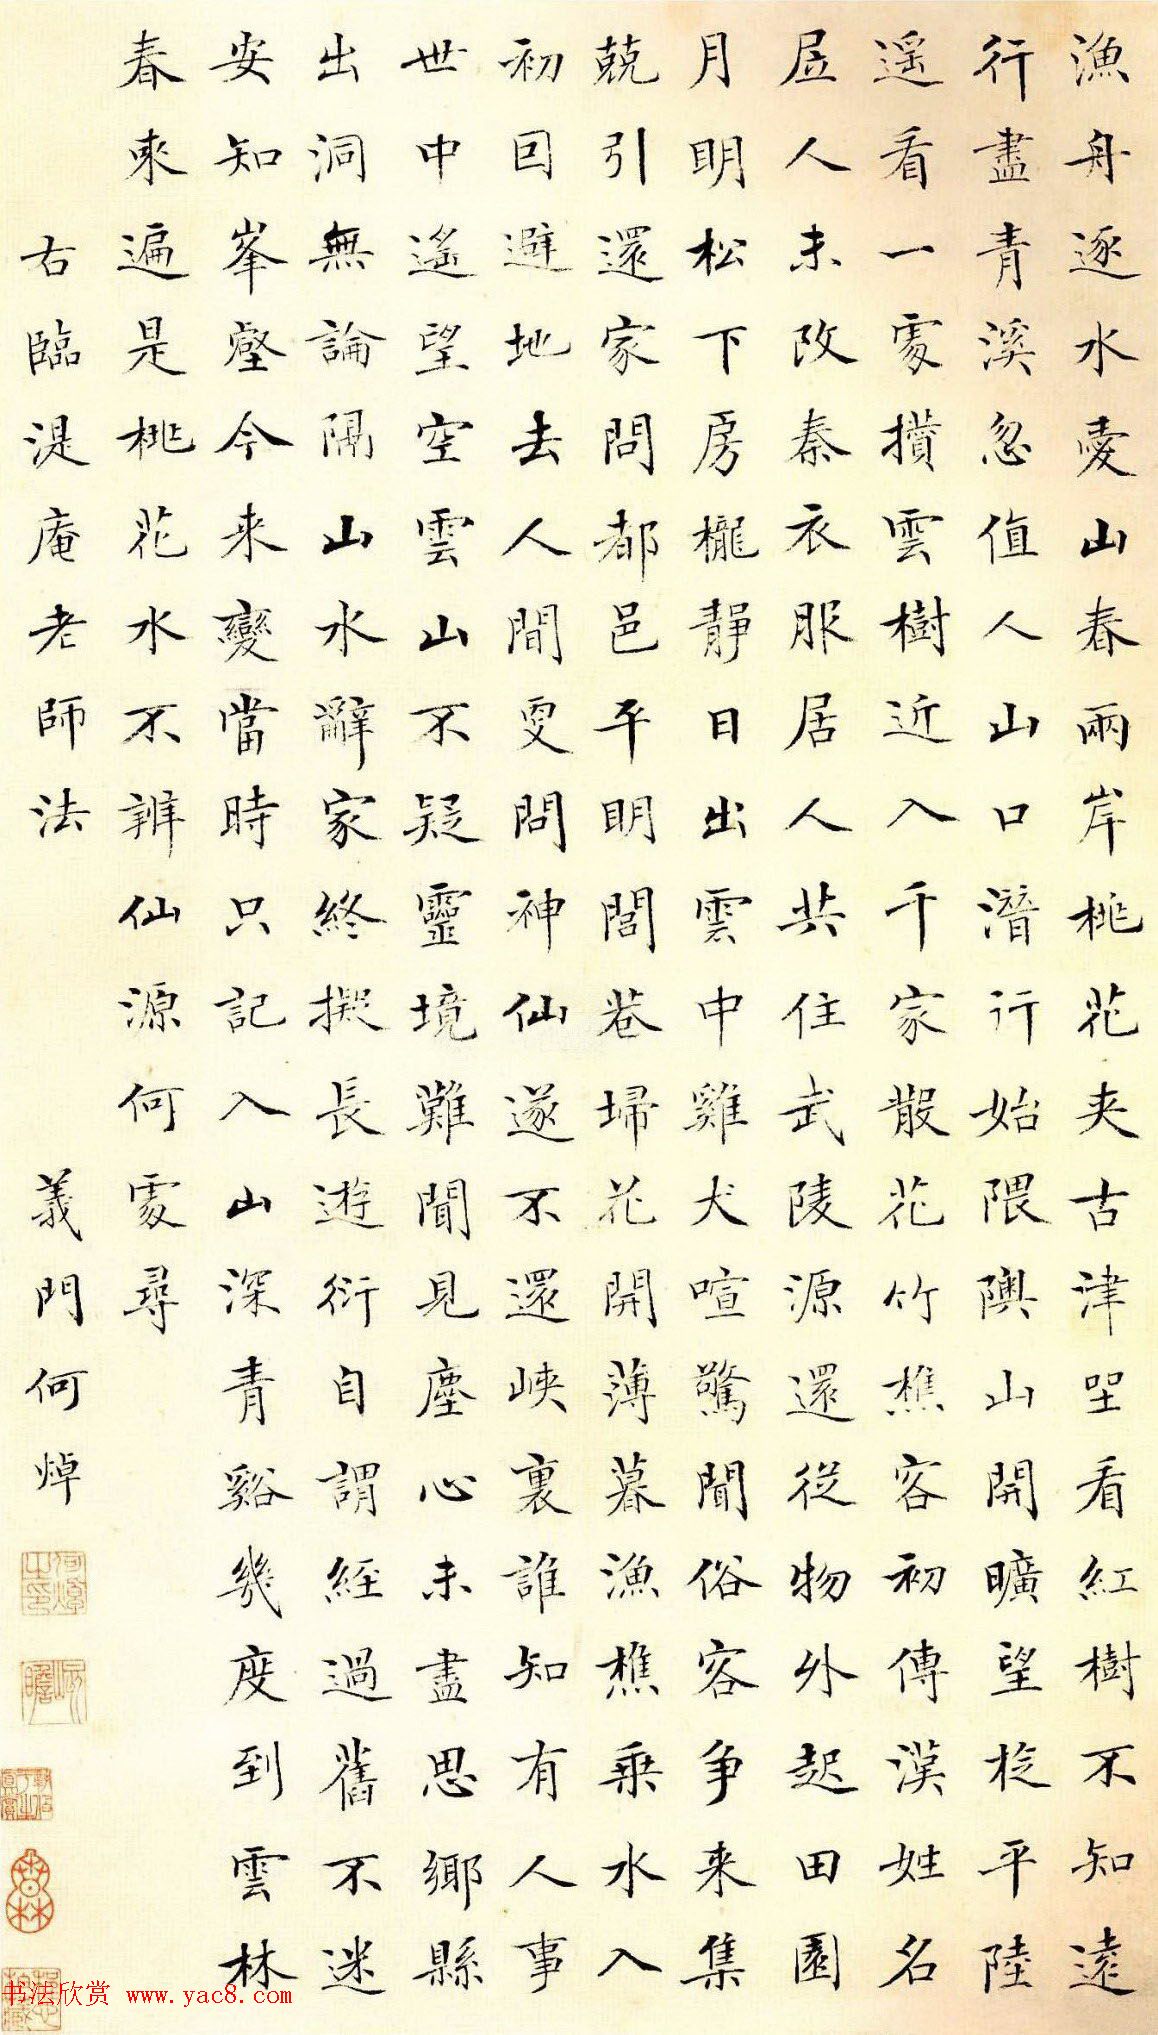 漁舟逐水愛山春兩岸桃花夾古津坐看紅樹不知遠
行盡青溪忽值人山口潛行始隈隩山開曠望旋平陸
遥看一處攢雲樹近入千家散花竹樵客初傳漢姓名
居人未改秦衣服居人共住武陵源還從物外起田園
月明松下房櫳靜日出雲中雞犬喧驚聞俗客爭来集
競引還家問都邑平明閭巷埽花開薄暮漁樵乘水入
初因避地去人間更問神仙遂不還峽裏誰知有人事
世中遙望空雲山不疑靈境難聞見塵心未盡思鄉縣
出洞無論隔山水辭家終擬長遊衍自謂經過舊不迷
安知峯壑今来變當時只記入山深青谿幾度到雲林
春來遍是桃花水不辨仙源何處尋
右臨湜庵老師法 義門何焯
何焯之印
屺瞻
书法欣赏 www.yac8.com